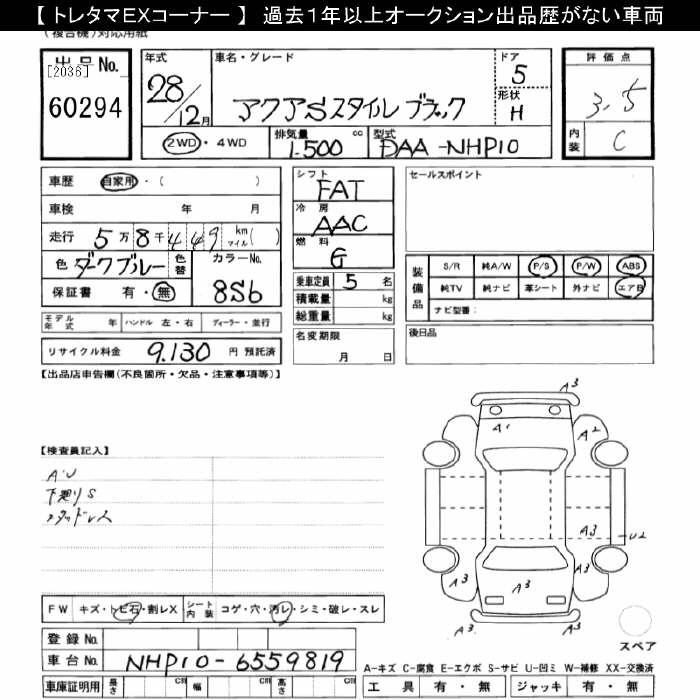 【 トレタマEXコーナー 】 過去1年以上オークション出品歴がない車両
(複合機) 対応用紙
出品No.
[2036]
60294
年式
28/12月
車名・グレード
アクアSスタイルブラック
ドア
5
形状
H
評価点
3.5
内装
C
2WD・4WD
排気量
1.500 cc
型式
DAA-NHP10
車歴 自家用・( )
車検 年 月
走行 5万8千449 km マイル( )
色 ダークブルー 色替
カラーNo.
8S6
保証書 有・無
シフト
FAT
冷房
AAC
燃料
G
乗車定員 5 名
積載量 kg
総重量 kg
セールスポイント
装備品
S/R 純A/W P/S P/W ABS
純TV 純ナビ 革シート 外ナビ エアB
ナビ型番:
モデル年式 年 ハンドル 左・右 ディーラー・並行
リサイクル料金 9.130 円 預託済
名変期限
月 日
後日品
【出品店申告欄(不良箇所・欠品・注意事項等)】
【検査員記入】
A・U
下廻りS
スタッドレス
A3
A1
A2
A3
U2
A3
A3
A3
A3
A3
スペア
FW キズ・トビ石・割レX シート内装 コゲ・穴・汚レ・シミ・破レ・スレ
登録No.
車台No. NHP10-6559819
車庫証明用 長さ cm 幅 cm 高さ cm
A-キズ C-腐食 E-エクボ S-サビ U-凹ミ W-補修 XX-交換済
工具 有・無 ジャッキ 有・無